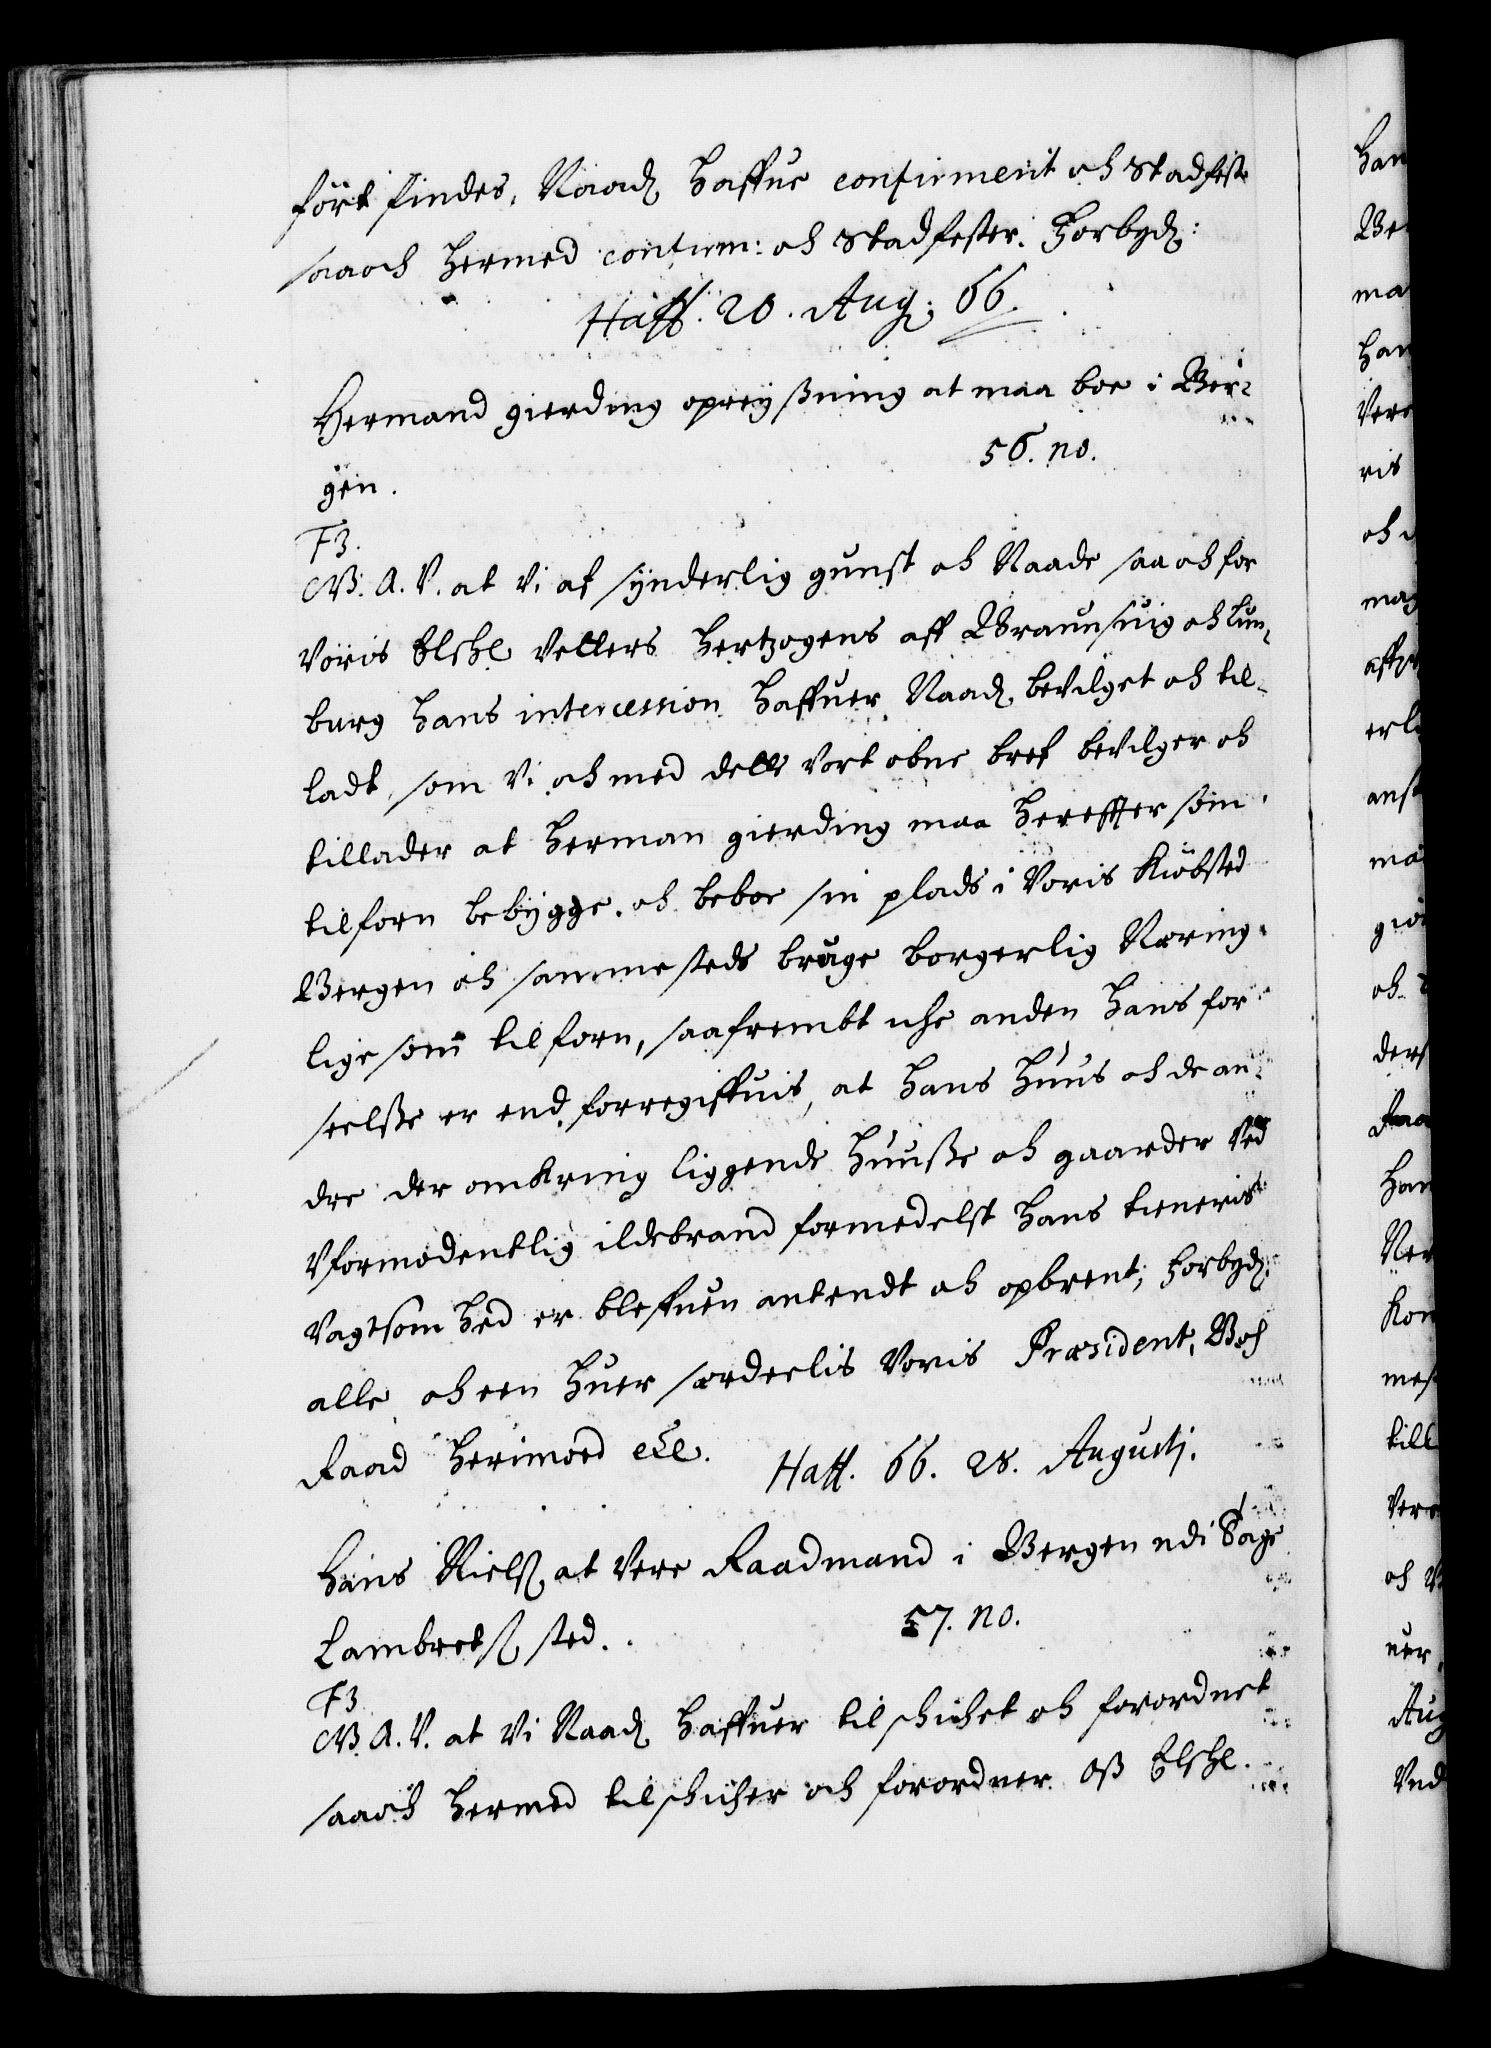 fört findes, Naad: haffue confirmerit och Stadfest
saaoch hermed confirm: och Stadfester. Forbyd:
Haff. 20. Aug: 66.
Hermand gierding opreyßning at maa boe i Ber-
gen.
56. no.
F3.
G. A. V. at Vi af synderlig gunst och Naade saa och for
Voris Elschl Vetters Hertzogens aff Braunsuig och Lun-
burg hans intercession haffuer Naad. bevilget och til-
ladt, som Vi och med dette Vort obne bref bevilger och
tillader at Herman gierding maa herefter som
tilforn bebygge och beboe sin plads i Voris Kiöbsted
Bergen och sammesteds bruge borgerlig Næring
lige som tilforn, saafrembt iche anden hans for
seelße er end forregiffuis, at hans huus och de an-
dre der omkring liggende huuße och gaarder Ved
Vformodentlig ildebrand formedelst hans tieneris
Vagtsomhed er bleffuen antendt och opbrent, Forbyd:
alle och een huer særdeelis Voris Præsident, B. och
Raad herimod etc.
Haff. 66. 28. Augusti.
Hans Niels: at Vere Raadmand i Bergen udi
Lambrets: sted.
57. no.
F3
G. A. V. at Vi Naad: haffuer tilschichet och forordnet
saaoch hermed tilschicher och forordner Oß Elschl.
Han
Be
ma
han
Vere
ris
och
mag
aff
erl
anst
ma
giö
och
ders
Raa
han
Ner
Kon
mes
till
Vere
och
uer,
Aug
Vnd